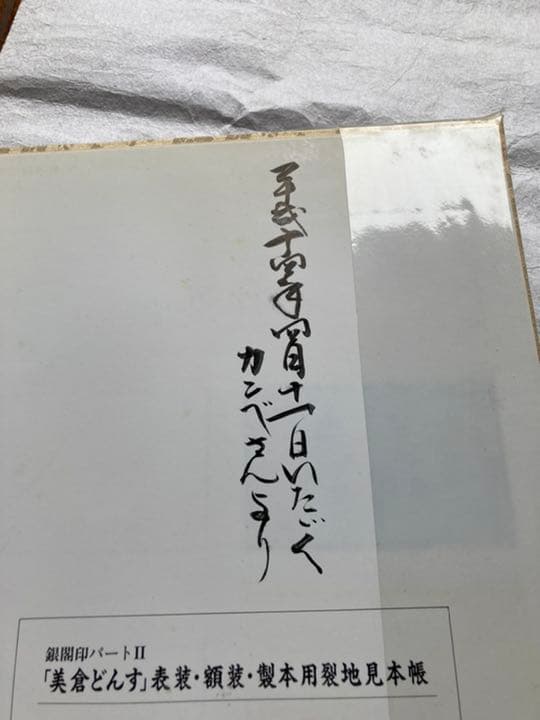 平成十四年四月十一日いたゞく
カンベさんより
銀閣印パートII
「美倉どんす」表装・額装・製本用裂地見本帳